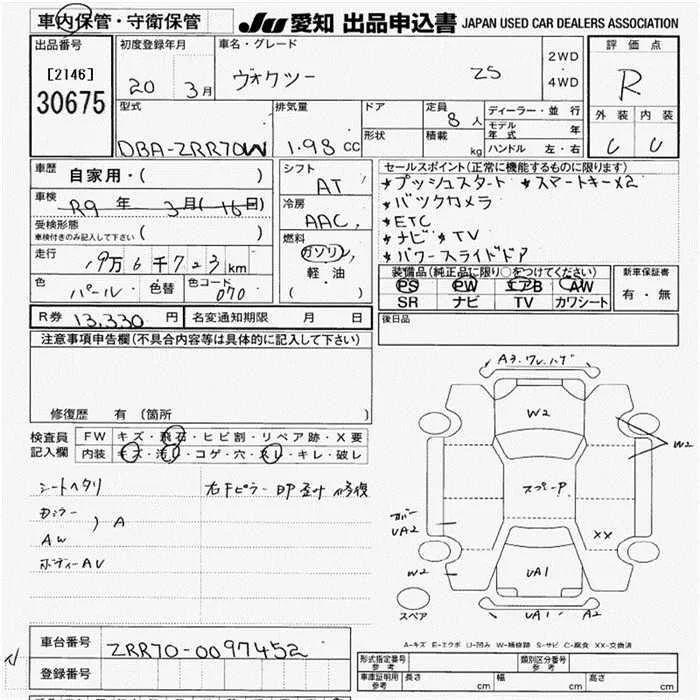 車内保管・守衛保管
JU 愛知 出品申込書 JAPAN USED CAR DEALERS ASSOCIATION
出品番号
[2146]
30675
初度登録年月
20 3月
車名・グレード
ヴォクシー ZS
2WD
4WD
評価点
R
外装 内装
C C
型式
DBA-ZRR70W
排気量
1.98 CC
ドア
形状
定員
8人
積載 kg
ディーラー・並行
モデル年式 年
ハンドル 左・右
車歴
自家用・( )
車検
R9年 3月(16日)
受検形態
車検付きのみ記入して下さい ( )
走行
19万6千723km
色
パール 色替 色コード 070
シフト
AT
冷房
AAC
燃料
ガソリン
軽油
( )
セールスポイント(正常に機能するものに限ります)
プッシュスタート スマートキー×2
バックカメラ
ETC
ナビ TV
パワースライドドア
装備品(純正品に限り○をつけてください)
PS PW エアB AW
SR ナビ TV カワシート
新車保証書
有・無
R券 13,330円 名変通知期限 月 日
後日品
注意事項申告欄(不具合内容等は具体的に記入して下さい)
修復歴 有(箇所 )
検査員記入欄
FW キズ・飛石・ヒビ割・リペア跡・X要
内装 キズ・汚レ・コゲ・穴・スレ・キレ・破レ
シートヘタリ
右Fピラー 凹 歪 修復
A
AW
ボディーAU
A3.
W2
W2
スペーP.
カバー
UA2
XX
W2
UA1
UA1 A2
スペア
A-キズ E-エクボ U-凹み W-補修跡 S-サビ C-腐食 XX-交換済
車台番号
ZRR70-0097452
登録番号
形式指定番号 参考
類別区分番号 参考
車庫証明用 参考
長さ cm 幅 cm 高さ cm